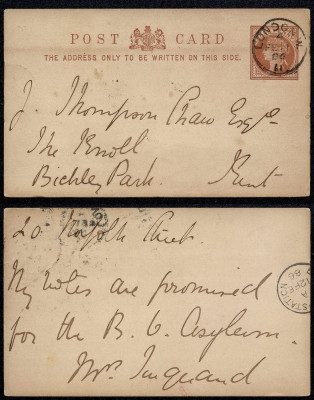 POST CARD
THE ADDRESS ONLY TO BE WRITTEN ON THIS SIDE.
LONDON. W
11
86
J. Thompson Chaw Esqre
The Knoll
Bickley Park. Kent
20 Norfolk Street.
My votes are promised
for the B. O. Asylum.
Mrs
STATION
A
12 FE
86